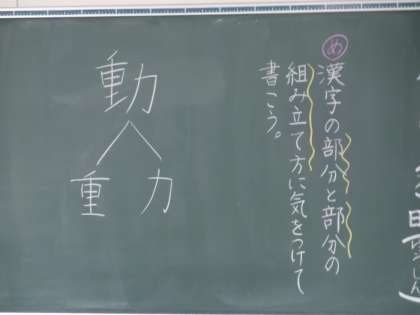 め 漢字の部分と部分の
組み立て方に気をつけて
書こう。
動
重 力